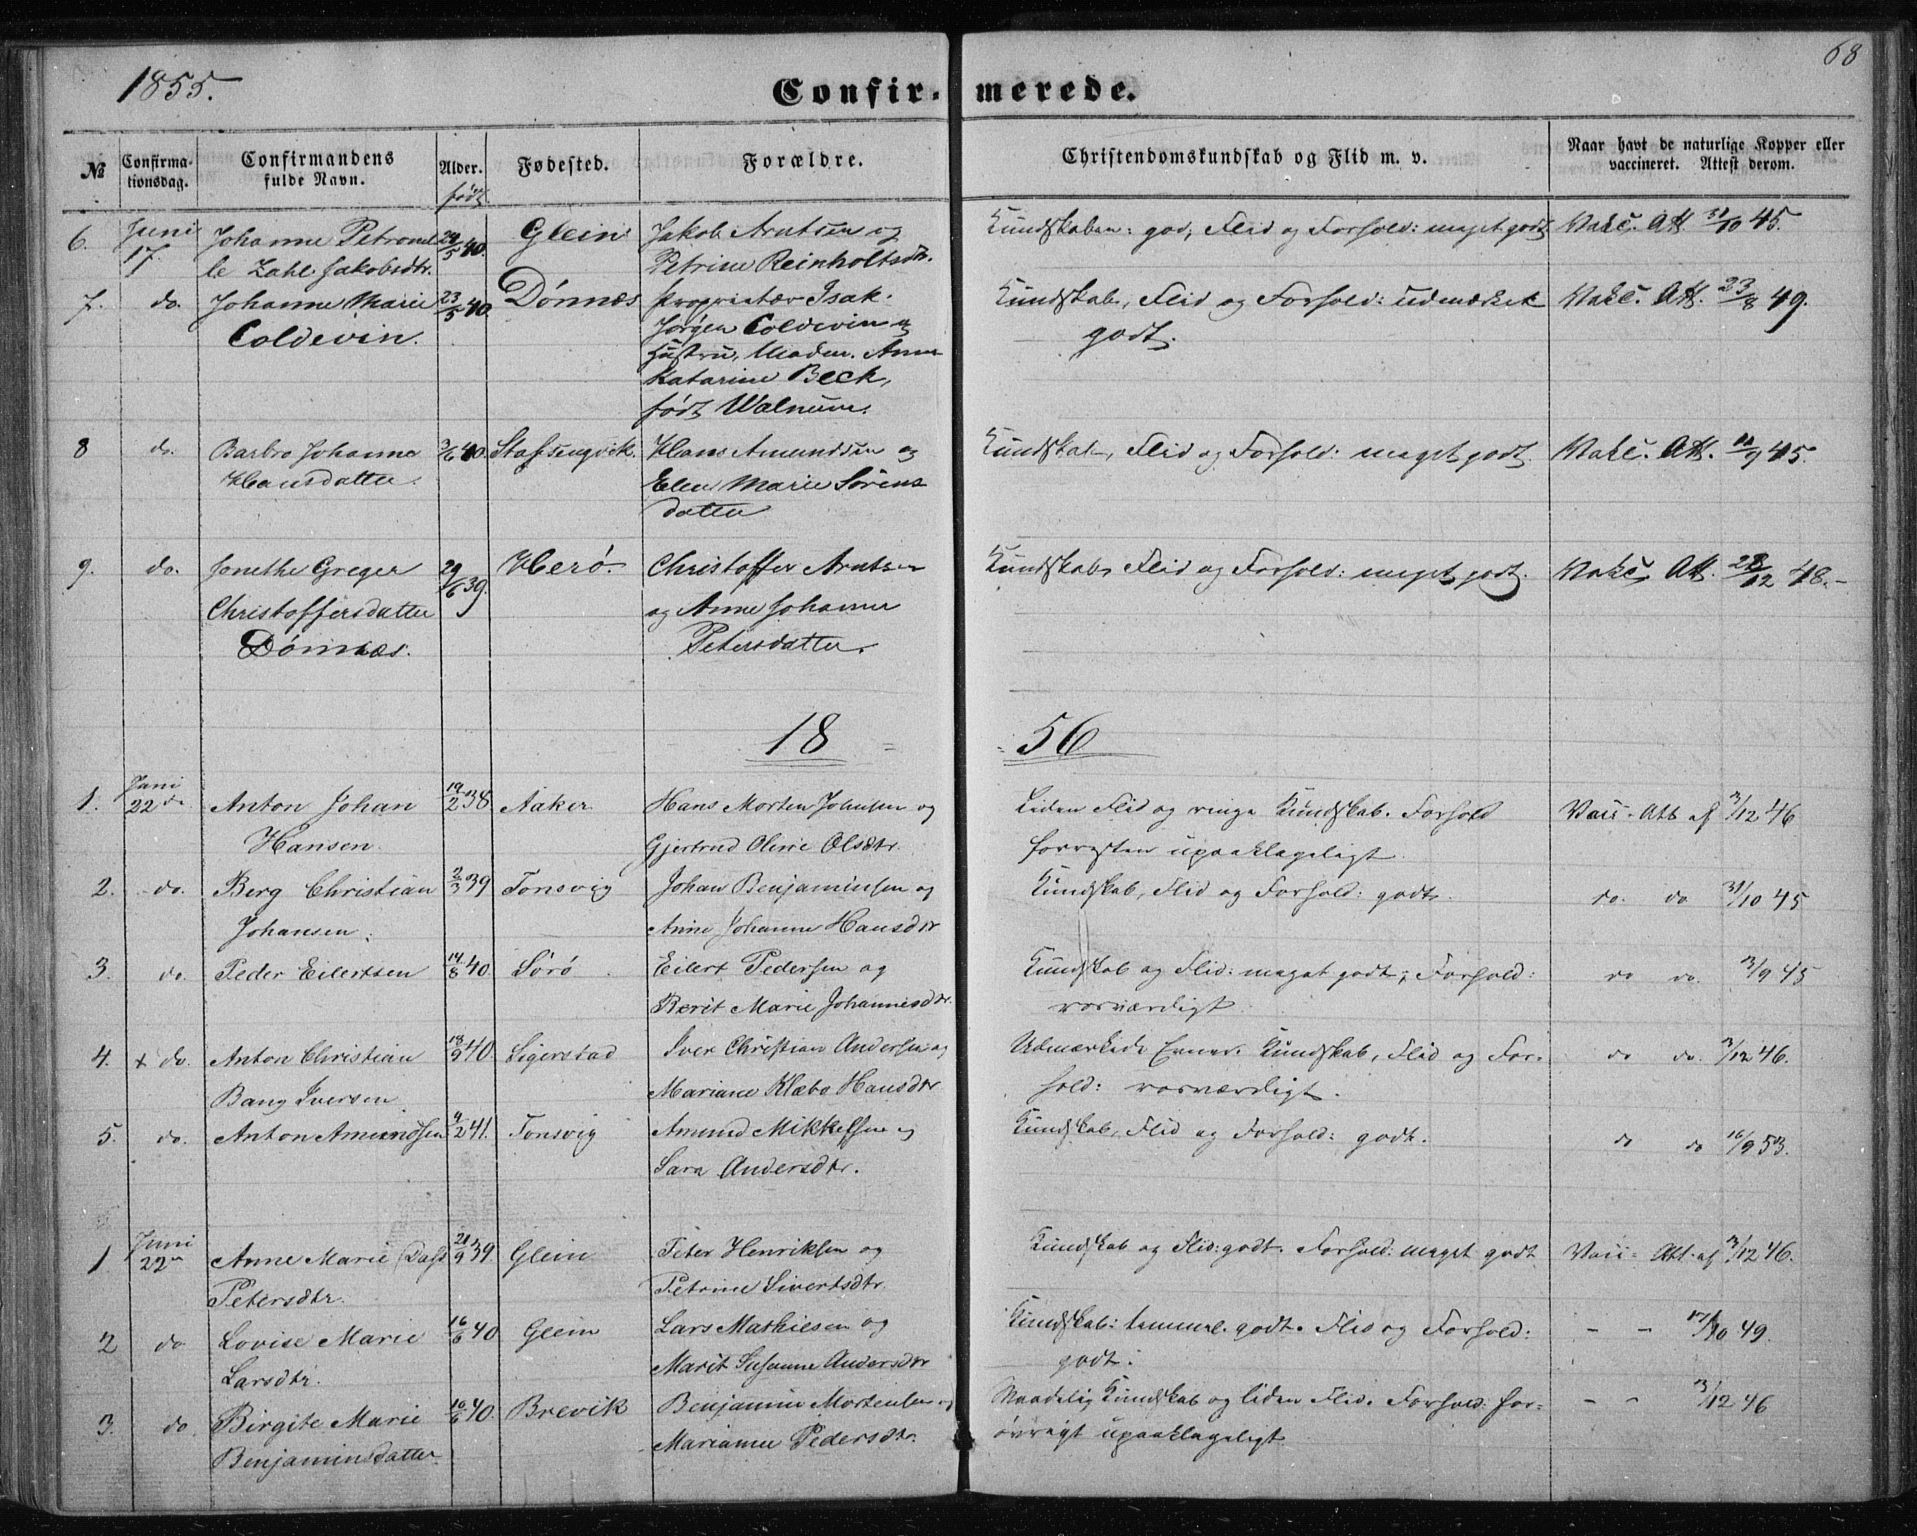 68
1855.
Confirmerede.
№ Confirmationsdag. Confirmandens fulde Navn. Alder. født Fødested. Forældre. Christendomskundskab og Flid m. v. Naar havt de naturlige Kopper eller vaccineret. Attest derom.
6. Juni 17. Johanne Petronel 29/5 40. Glein Jakob Arntsen og Kundskaben: god; Flid og Forhold: meget godt Vakc. Att. 31/10 45.
le Zahl Jakobsdtr. Petrine Reinholtsdtr.
7. do. Johanne Marie 23/5 40. Dönnæs Proprietær Isak Kundskab, Flid og Forhold: udmærket Vakc. Att. 23/8 49.
Coldevin. Jörgen Coldevin og godt.
Hustru, Madm. Anne
Katarine Beck,
født Walnum.
8 do. Barbro Johanna 2/6 40. Stafsengvik. Hans Amundsen og Kundskab, Flid og Forhold: meget godt. Vakc. Att. 11/9 45.
Hansdatter. Elen Marie Sörens
datter
9. do. Jonethe Greger 29/6 39. Herö Christoffer Arntsen Kundskab, Flid og Forhold: meget godt. Vakc. Att. 28/12 48.-
Christoffersdatter og Anne Johanna
Dönnæs. Petersdatter.
18 = = 56
1. Juni 22de Anton Johan 19/2 38. Aaker Hans Morten Johnsen og Liden Flid og ringe Kundskab. Forhold Vacc. Att. af 3/12 46
Hansen. Gjertrud Oline Olsdtr. forresten upaaklageligt.
2. do. Berg Christian 2/3 39 Tonsvig Johan Benjaminsen og Kundskab, Flid og Forhold: godt. do. do 31/10 45
Johansen. Anne Johanne Hansdtr
3. do. Peder Eilertsen 14/8 40. Sörö Eilert Pedersen og Kundskab og Flid: meget godt; Forhold: do do. 13/9 45
Berit Marie Johannesdtr. rosværdigt.
4. + do. Anton Christian 18/9 40. Sigerstad Iver Christian Andersen og Udmærkede Evner. Kundskab, Flid og For- do do. 3/12 46.
Bang Iversen Mariane Klæbo Hansdtr hold: rosværdigt.
5. do. Anton Amundsen 9/2 41. Tonsvig Amund Mikkelsen og Kundskab, Flid og Forhold: godt. do do 16/9 53.
Sara Andersdtr.
1 Juni 22de Anne Marie Dass 21/9 39. Glein Peter Henriksen og Kundskab og Flid: godt. Forhold: meget godt Vacc. Att. af 3/12 46.
Petersdtr. Petrine Sivertsdtr.
2 do Lovise Marie 16/6 40 Glein Lars Mathiesen og Kundskab: temmel. godt. Flid og Forhold: - - 17/10 49.
Larsdtr. Marit Susanne Andersdtr godt.
3. do Birgite Marie 10/6 40. Brevik Benjamin Mortensen og Maadelig Kundskab og liden Flid. Forhold: for- - - 3/12 46
Benjaminsdatter Marianne Pedersdtr. övrigt upaaklageligt